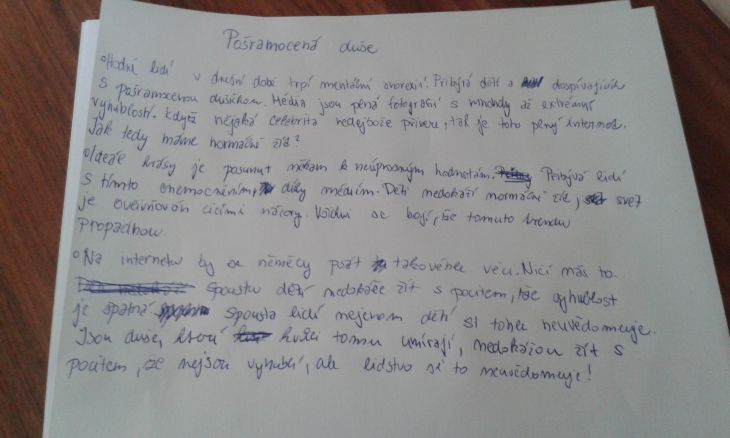 Pošramocená duše
Hodně lidí v dnešní době trpí mentální anorexií. Přibývá dětí a dospívajících
s pošramocenou dušičkou. Média jsou plná fotografií s mnohdy až extrémní
vyhublostí. Když nějaká celebrita nedejbože přibere, tak je toho plný internet.
Jak tedy máme normálně žít?
Ideál krásy je posunut někam k neúprosným hodnotám. Přibývá lidí
s tímto onemocněním, díky médiím. Děti nedokáží normálně žít, svět
je ovlivňován cizími názory. Všichni se bojí, že tomuto trendu
propadnou.
Na internetu by se neměly psát takovéhle věci. Ničí nás to.
Spoustu dětí nedokáže žít s pocitem, že vyhublost
je špatná. Spousta lidí nejenom dětí si toho neuvědomuje.
Jsou duše, které kvůli tomu umírají, nedokážou žít s
pocitem, že nejsou vyhublí, ale lidstvo si to neuvědomuje!